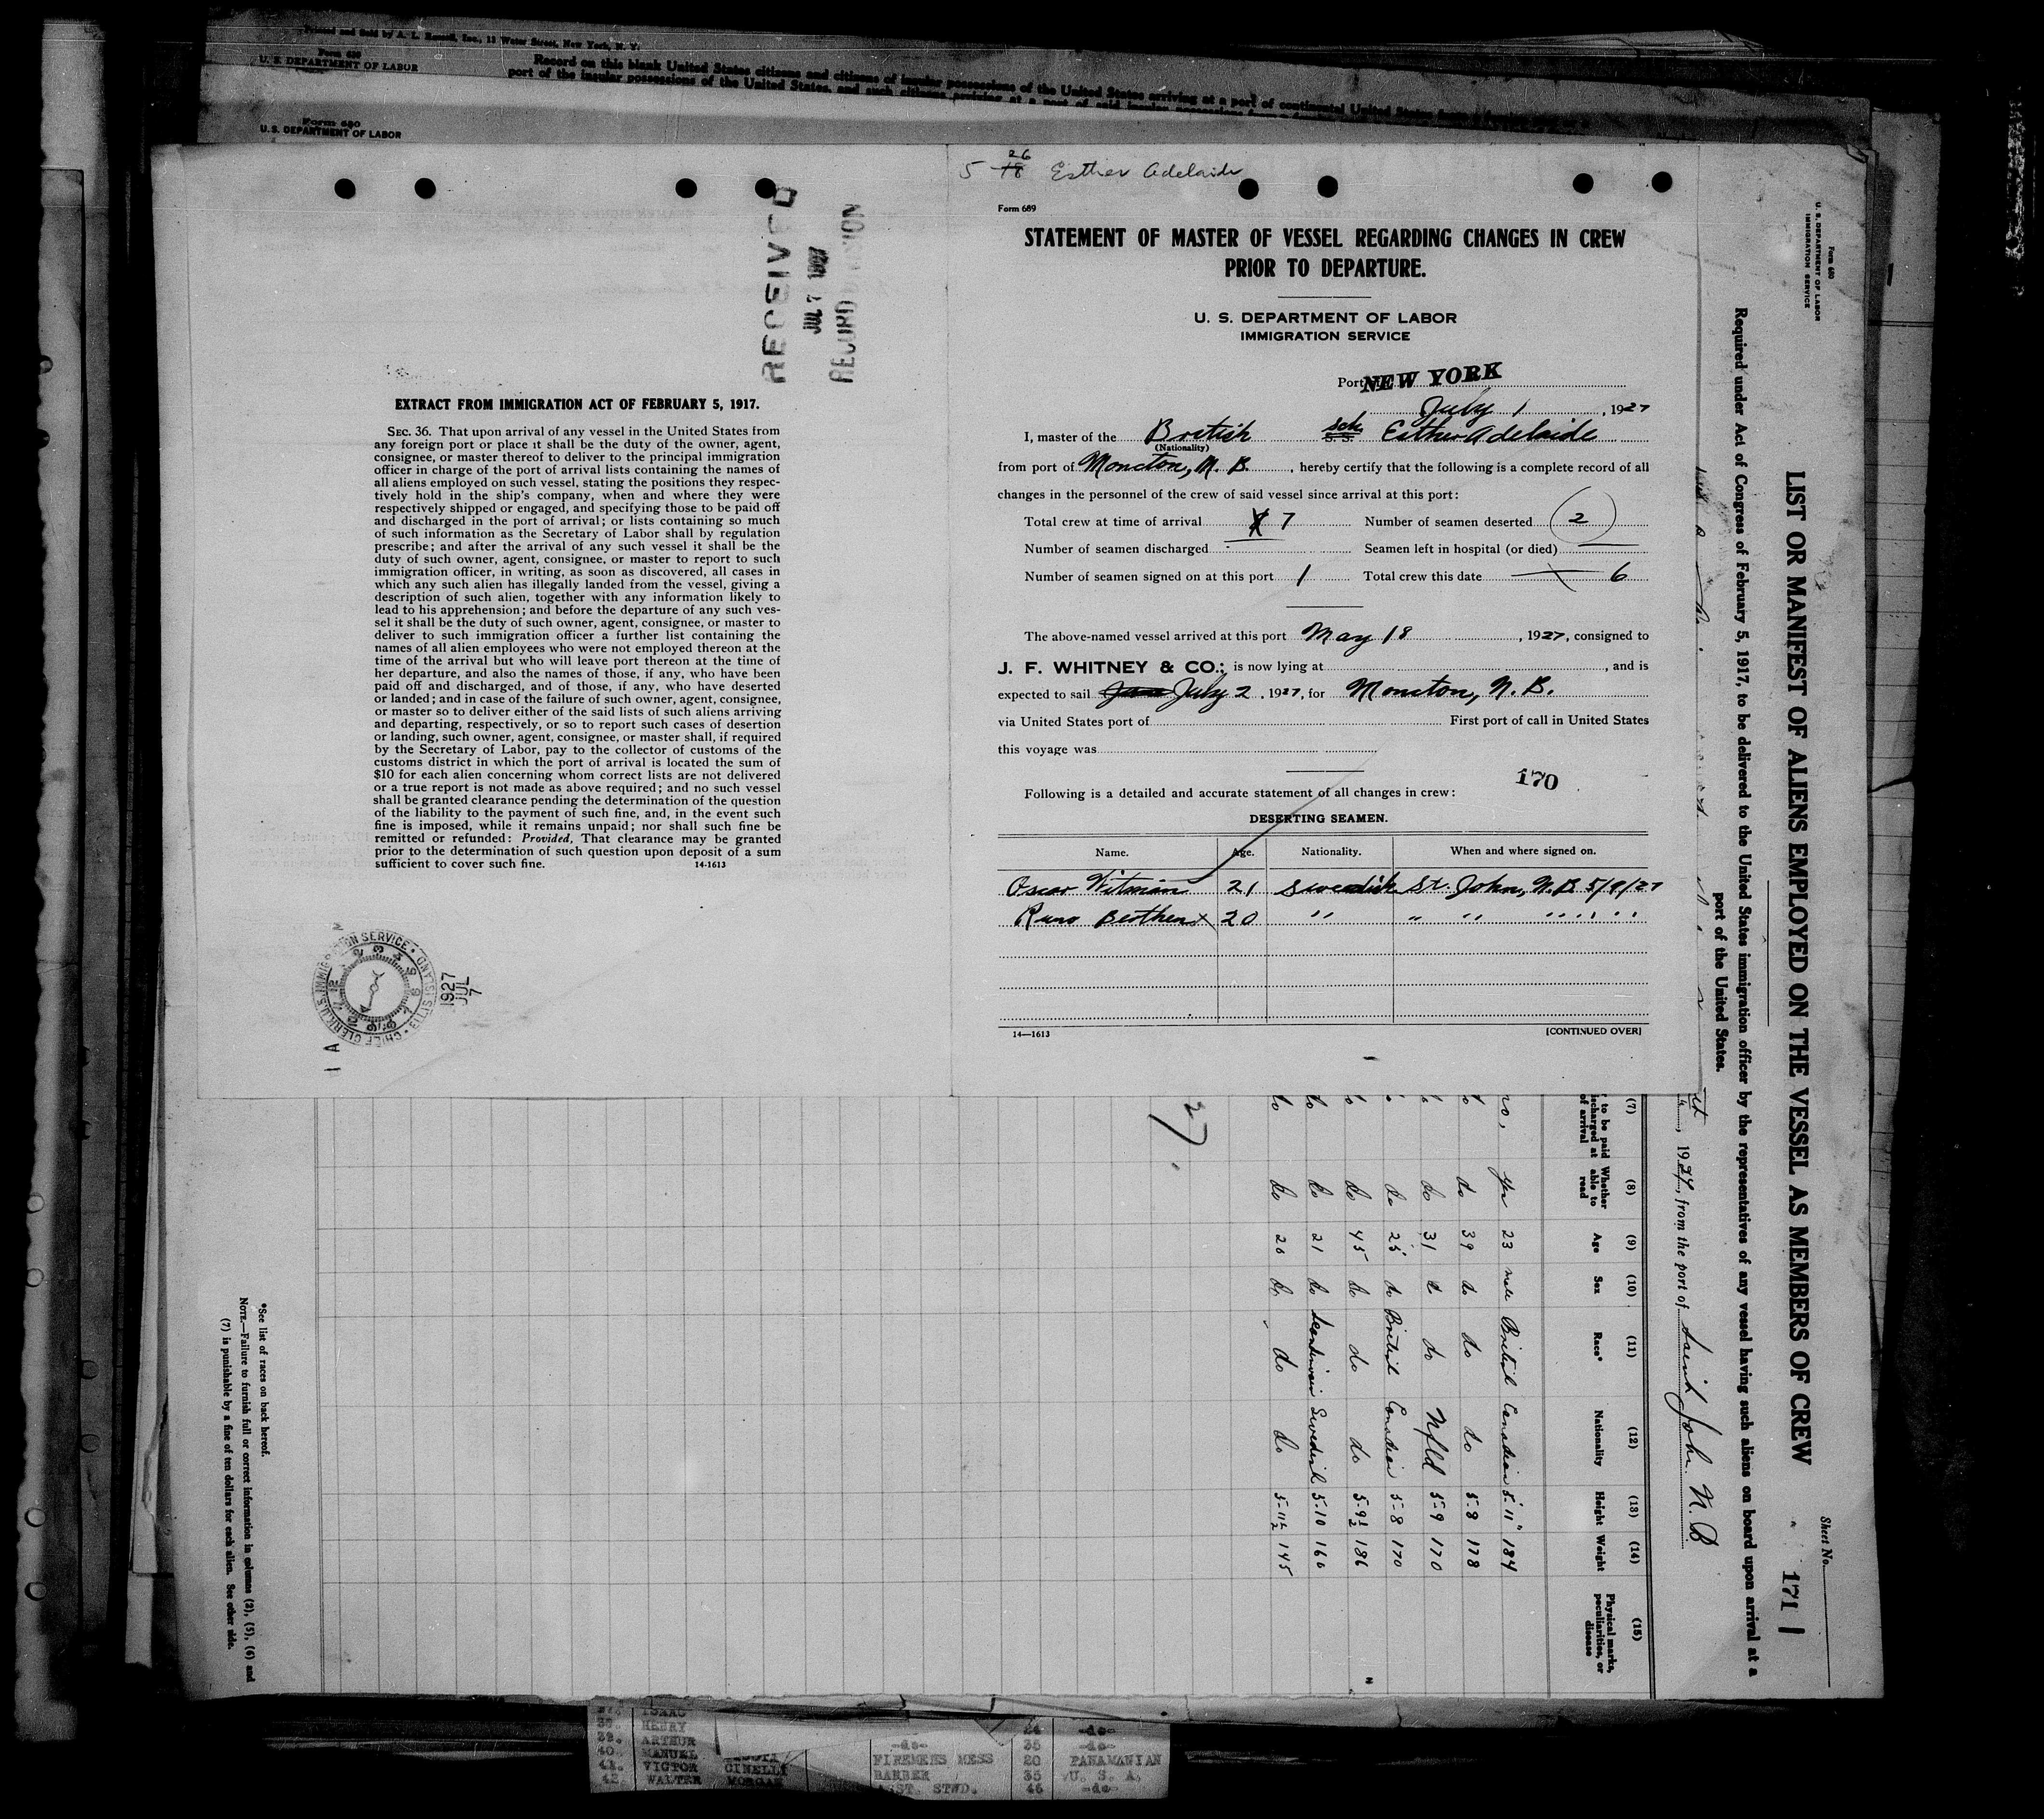 Printed and Sold by A. L. Russell, Inc., 12 Water Street, New York, N. Y.
Form 680
U. S. DEPARTMENT OF LABOR
Record on this blank United States citizens and citizens of insular possessions of the United States arriving at a port of continental United States from
port of the insular possessions of the United States, and such citizens arriving at a port of said insular possessions from a
Form 680
U. S. DEPARTMENT OF LABOR
RECEIVED
JUL 7 1927
RECORD DIVISION
EXTRACT FROM IMMIGRATION ACT OF FEBRUARY 5, 1917.
SEC. 36. That upon arrival of any vessel in the United States from
any foreign port or place it shall be the duty of the owner, agent,
consignee, or master thereof to deliver to the principal immigration
officer in charge of the port of arrival lists containing the names of
all aliens employed on such vessel, stating the positions they respec-
tively hold in the ship's company, when and where they were
respectively shipped or engaged, and specifying those to be paid off
and discharged in the port of arrival; or lists containing so much
of such information as the Secretary of Labor shall by regulation
prescribe; and after the arrival of any such vessel it shall be the
duty of such owner, agent, consignee, or master to report to such
immigration officer, in writing, as soon as discovered, all cases in
which any such alien has illegally landed from the vessel, giving a
description of such alien, together with any information likely to
lead to his apprehension; and before the departure of any such ves-
sel it shall be the duty of such owner, agent, consignee, or master to
deliver to such immigration officer a further list containing the
names of all alien employees who were not employed thereon at the
time of the arrival but who will leave port thereon at the time of
her departure, and also the names of those, if any, who have been
paid off and discharged, and of those, if any, who have deserted
or landed; and in case of the failure of such owner, agent, consignee,
or master so to deliver either of the said lists of such aliens arriving
and departing, respectively, or so to report such cases of desertion
or landing, such owner, agent, consignee, or master shall, if required
by the Secretary of Labor, pay to the collector of customs of the
customs district in which the port of arrival is located the sum of
$10 for each alien concerning whom correct lists are not delivered
or a true report is not made as above required; and no such vessel
shall be granted clearance pending the determination of the question
of the liability to the payment of such fine, and, in the event such
fine is imposed, while it remains unpaid; nor shall such fine be
remitted or refunded: Provided, That clearance may be granted
prior to the determination of such question upon deposit of a sum
sufficient to cover such fine. 14-1613
CHIEF CLERK, U.S. IMMIGRATION SERVICE • ELLIS ISLAND
1927 JUL 7
5 26 18 Esther Adelaide
Form 689
STATEMENT OF MASTER OF VESSEL REGARDING CHANGES IN CREW
PRIOR TO DEPARTURE.
U. S. DEPARTMENT OF LABOR
IMMIGRATION SERVICE
Port NEW YORK
July 1, 1927
I, master of the British sch. Esther Adelaide
(Nationality)
from port of Moncton, N. B., hereby certify that the following is a complete record of all
changes in the personnel of the crew of said vessel since arrival at this port:
Total crew at time of arrival 7 Number of seamen deserted 2
Number of seamen discharged Seamen left in hospital (or died)
Number of seamen signed on at this port 1 Total crew this date 6
The above-named vessel arrived at this port May 18, 1927, consigned to
J. F. WHITNEY & CO.; is now lying at , and is
expected to sail June July 2, 1927, for Moncton, N. B.
via United States port of First port of call in United States
this voyage was
170
Following is a detailed and accurate statement of all changes in crew:
DESERTING SEAMEN.
Name. Age. Nationality. When and where signed on.
Oscar Witman 21 Swedish St. John, N. B. 5/9/27
Runo Beothen 20 " " " " "
14—1613 [CONTINUED OVER]
U. S. DEPARTMENT OF LABOR
IMMIGRATION SERVICE
Form 680
LIST OR MANIFEST OF ALIENS EMPLOYED ON THE VESSEL AS MEMBERS OF CREW
Sheet No.
171
Required under Act of Congress of February 5, 1917, to be delivered to the United States immigration officer by the representatives of any vessel having such aliens on board upon arrival at a
port of the United States.
, 1927, from the port of Saint John N. B.
(7) (8) (9) (10) (11) (12) (13) (14) (15)
to be paid
discharged at
of arrival
Whether able to read
Age
Sex
Race*
Nationality
Height
Weight
Physical marks, peculiarities, or disease
no, yes 23 male British Canadian 5'-11" 184
do do 39 do do do 5-8 178
do do 31 do do Nfld 5-9 170
do do 25 do British Canadian 5-8 170
do do 45 do do do 5-9½ 186
do do 21 do Scandinavian Swedish 5-10 160
do do 20 do do do 5-11½ 145
27
*See list of races on back hereof.
NOTE.—Failure to furnish full or correct information in columns (2), (5), (6) and
(7) is punishable by a fine of ten dollars for each alien. See other side.
37. ISAAC
38. HENRY 24 -do-
39. ARTHUR -do- 35 -do-
40. MANUEL FIREMENS MESS 20 PANAMANIAN
41. VICTOR CINELLI BARBER 35 U. S. A.
42. WALTER MORGAN ST. STWD. 46 -do-